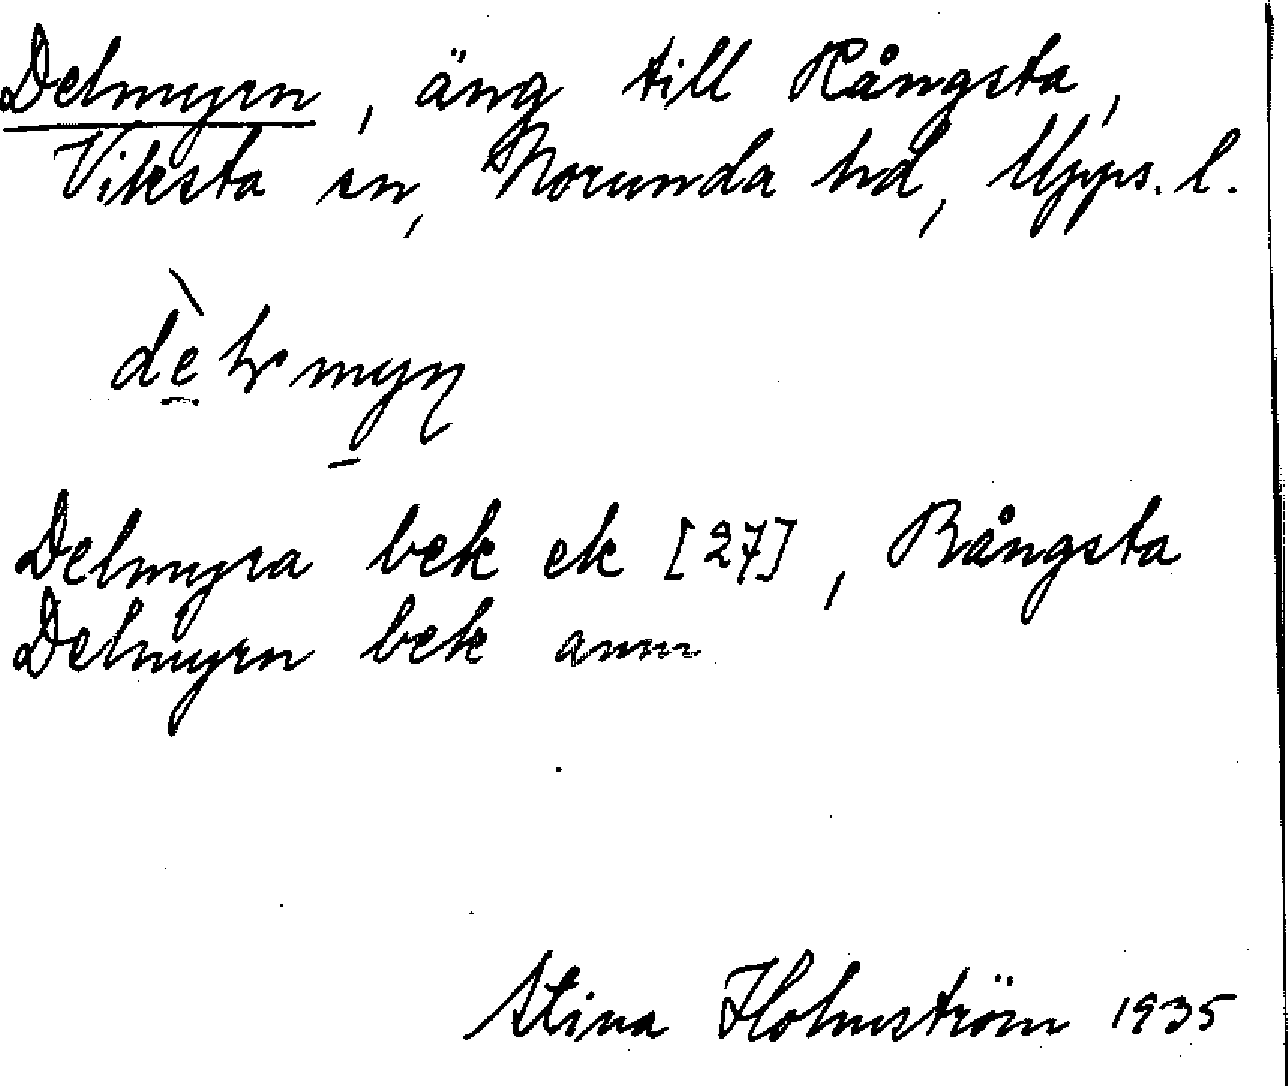 Delmyrn, äng till Rångsta,
Viksta sn, Norunda hd, Upps. l.
Delmyra bek ek [27], Rångsta
Delmyrn bek anm
Stina Holmström 1935